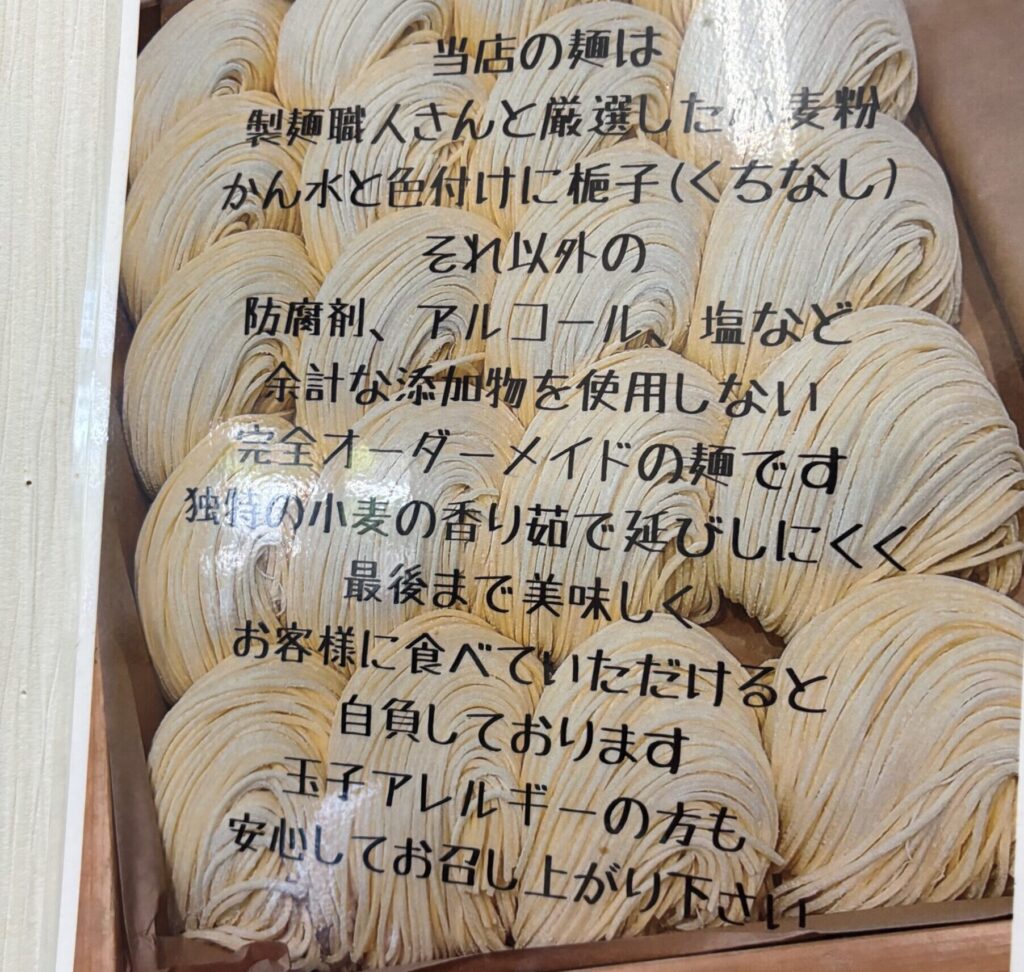 当店の麺は
製麺職人さんと厳選した小麦粉
かん水と色付けに梔子(くちなし)
それ以外の
防腐剤、アルコール、塩など
余計な添加物を使用しない
完全オーダーメイドの麺です
独特の小麦の香り茹で延びしにくく
最後まで美味しく
お客様に食べていただけると
自負しております
玉子アレルギーの方も
安心してお召し上がり下さい